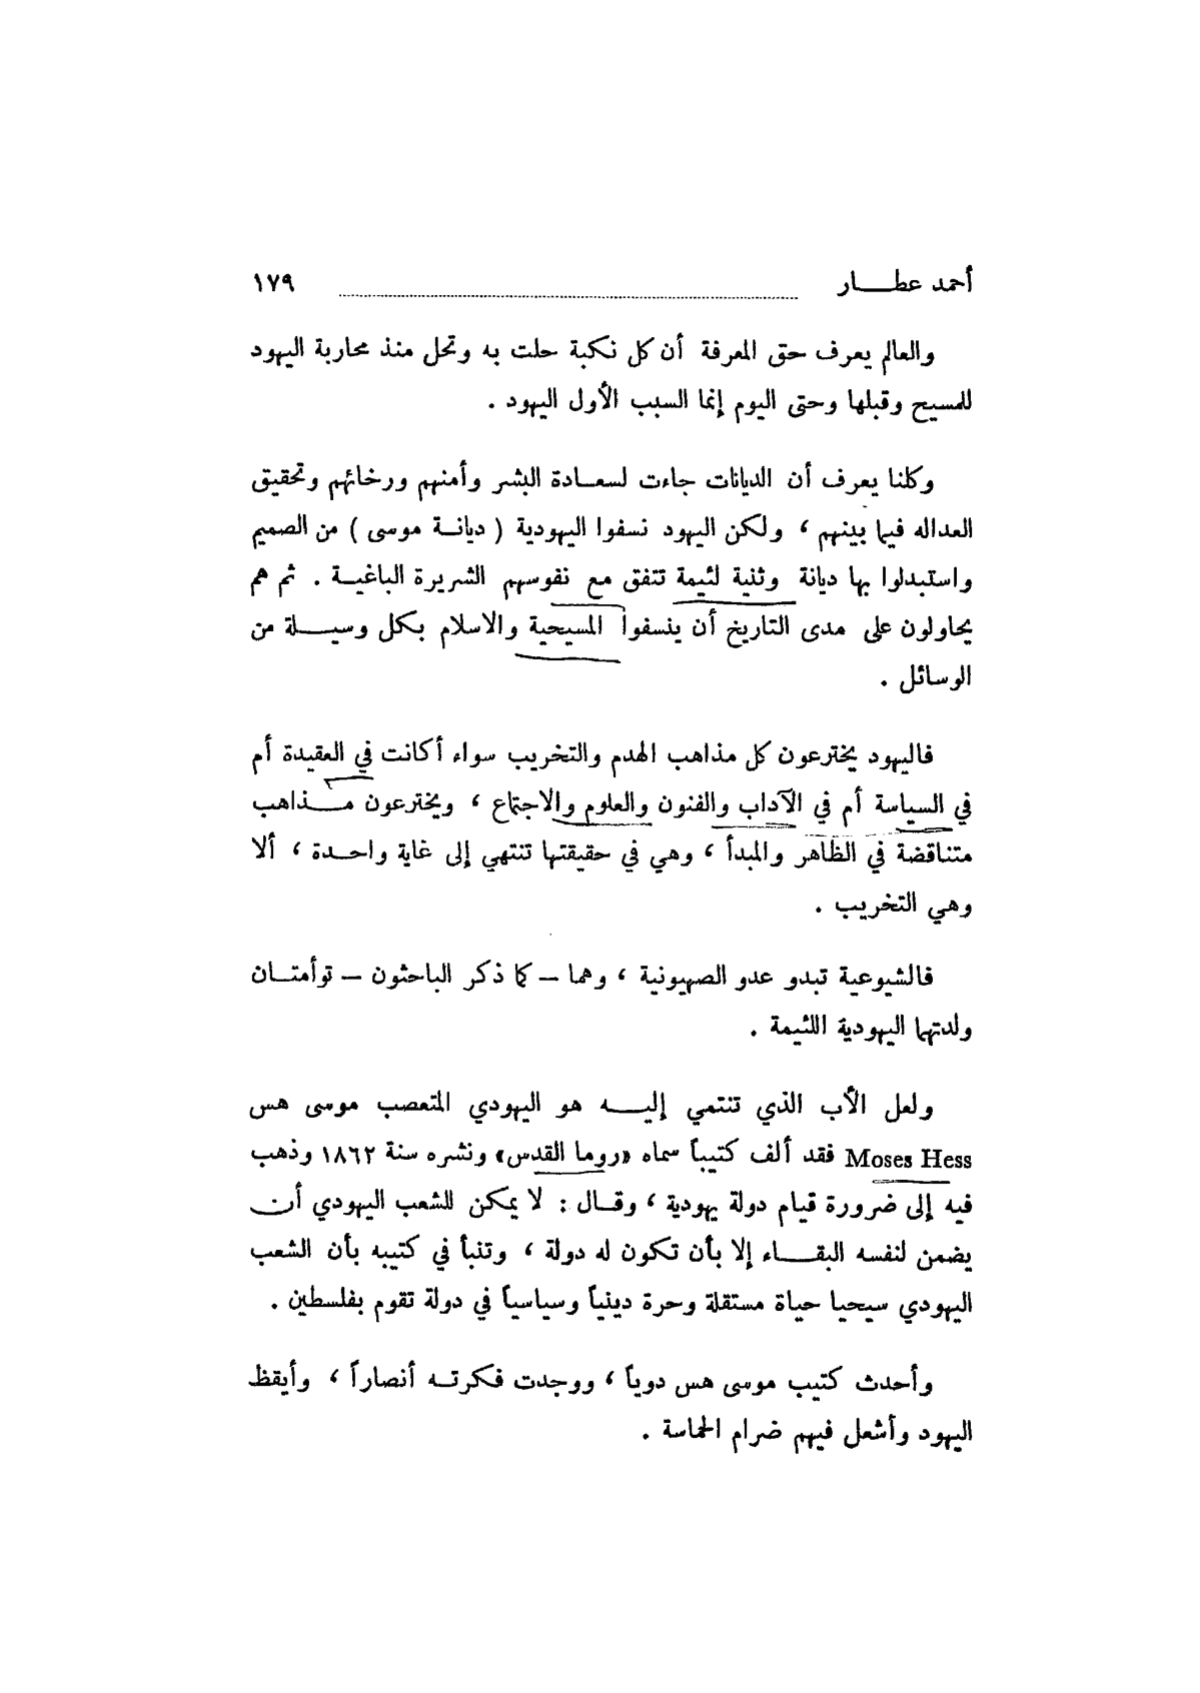 أحمد عطـــار ١٧٩
والعالم يعرف حق المعرفة أن كل نكبة حلت به وتحل منذ محاربة اليهود
للمسيح وقبلها وحتى اليوم إنما السبب الأول اليهود .
وكلنا يعرف أن الديانات جاءت لسعـادة البشر وأمنهم ورخائهم وتحقيق
العداله فيما بينهم ، ولكن اليهود نسفوا اليهودية ( ديانـة موسى ) من الصميم
واستبدلوا بها ديانة وثنية لئيمة تتفق مع نفوسهم الشريرة الباغيـة . ثم هم
يحاولون على مدى التاريخ أن ينسفوا المسيحية والاسلام بكل وسيـلة من
الوسائل .
فاليهود يخترعون كل مذاهب الهدم والتخريب سواء أكانت في العقيدة أم
في السياسة أم في الآداب والفنون والعلوم والاجتماع ، ويخترعون مـذاهب
متناقضة في الظاهر والمبدأ ، وهي في حقيقتها تنتهي إلى غاية واحـدة ، ألا
وهي التخريب .
فالشيوعية تبدو عدو الصهيونية ، وهما – كما ذكر الباحثون – توأمتـان
ولدتهما اليهودية اللئيمة .
ولعل الأب الذي تنتمي إليـه هو اليهودي المتعصب موسى هس
Moses Hess فقد ألف كتيباً سماه «روما القدس» ونشره سنة ١٨٦٢ وذهب
فيه إلى ضرورة قيام دولة يهودية ، وقـال : لا يمكن للشعب اليهودي أن
يضمن لنفسه البقـاء إلا بأن تكون له دولة ، وتنبأ في كتيبه بأن الشعب
اليهودي سيحيا حياة مستقلة وحرة دينياً وسياسياً في دولة تقوم بفلسطين .
وأحدث كتيب موسى هس دوياً ، ووجدت فكرتـه أنصاراً ، وأيقظ
اليهود وأشعل فيهم ضرام الحماسة .